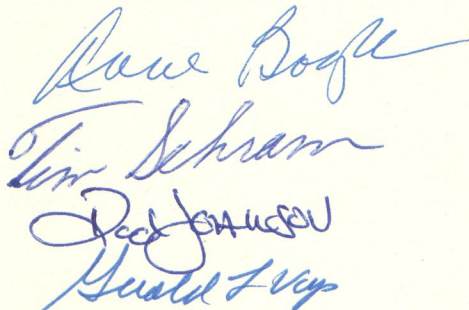 Dave Boyle
Tim Schram
Rod Johnson
Gerald L